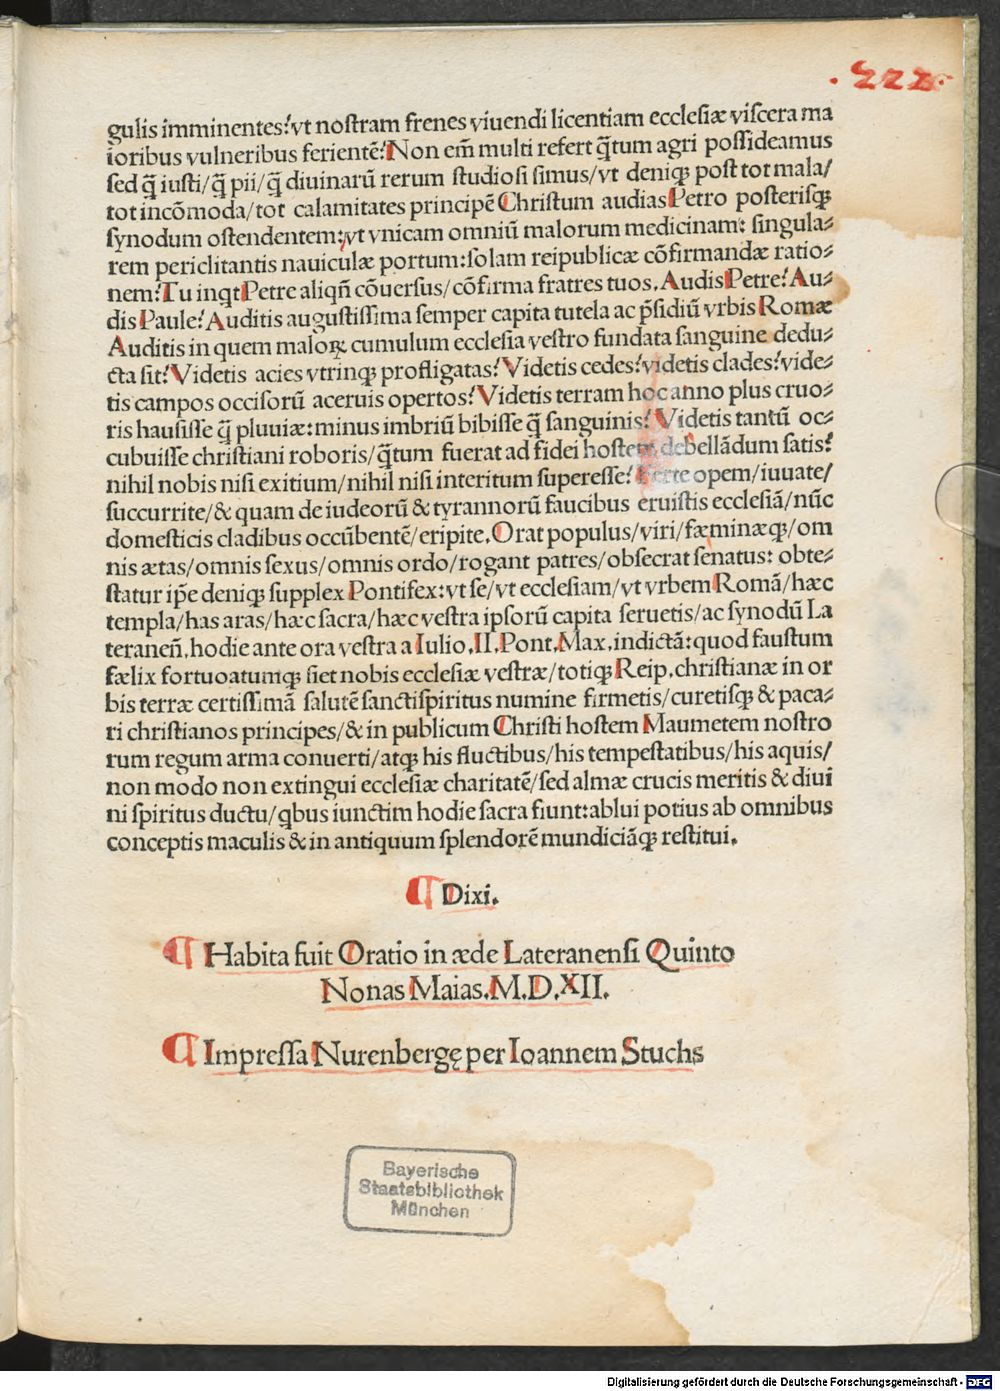 222
gulis imminentes?vt nostram frenes viuendi licentiam ecclesiæ viscera ma
ioribus vulneribus ferientē?Non em̄ multi refert q̄tum agri possideamus
sed q̄ iusti/q̄ pii/q̄ diuinarū rerum studiosi simus/vt deniqꝫ post tot mala/
tot incōmoda/tot calamitates principē Christum audias Petro posterisqꝫ
synodum ostendentem:vt vnicam omniū malorum medicinam: singula-
rem periclitantis nauiculæ portum:solam reipublicæ cōfirmandæ ratio-
nem?Tu inqt Petre aliqn̄ cōuersus/cōfirma fratres tuos. Audis Petre? Au-
dis Paule? Auditis augustissima semper capita tutela ac p̄sidiū vrbis Romæ
Auditis in quem maloꝝ cumulum ecclesia vestro fundata sanguine dedu-
cta sit?Videtis acies vtrinqꝫ profligatas?Videtis cedes?videtis clades?vide-
tis campos occisorū aceruis opertos?Videtis terram hoc anno plus cruo-
ris hausisse q̄ pluuiæ:minus imbriū bibisse q̄ sanguinis?Videtis tantū oc-
cubuisse christiani roboris/q̄tum fuerat ad fidei hostem debellādum satis?
nihil nobis nisi exitium/nihil nisi interitum superesse? Ferte opem/iuuate/
succurrite/& quam de iudeorū & tyrannorū faucibus eruistis ecclesiā/nūc
domesticis cladibus occūbentē/eripite. Orat populus/viri/fæminæqꝫ/om
nis ætas/omnis sexus/omnis ordo/rogant patres/obsecrat senatus: obte-
statur ip̄e deniqꝫ supplex Pontifex:vt se/vt ecclesiam/vt vrbem Romā/hæc
templa/has aras/hæc sacra/hæc vestra ipsorū capita seruetis/ac synodū La
teraneñ.hodie ante ora vestra a Iulio.II.Pont.Max.indictā:quod faustum
fælix fortuoatumqꝫ siet nobis ecclesiæ vestræ/totiqꝫ Reip.christianæ in or
bis terræ certissimā salutē sanctispiritus numine firmetis/curetisqꝫ & paca-
ri christianos principes/& in publicum Christi hostem Maumetem nostro
rum regum arma conuerti/atqꝫ his fluctibus/his tempestatibus/his aquis/
non modo non extingui ecclesiæ charitatē/sed almæ crucis meritis & diui
ni spiritus ductu/qbus iunctim hodie sacra fiunt:ablui potius ab omnibus
conceptis maculis & in antiquum splendorē mundiciāqꝫ restitui.
¶ Dixi.
¶ Habita fuit Oratio in æde Lateranensi Quinto
Nonas Maias.M.D.XII.
¶ Impressa Nurenbergę per Ioannem Stuchs
Bayerische
Staatsbibliothek
München
Digitalisierung gefördert durch die Deutsche Forschungsgemeinschaft - DFG